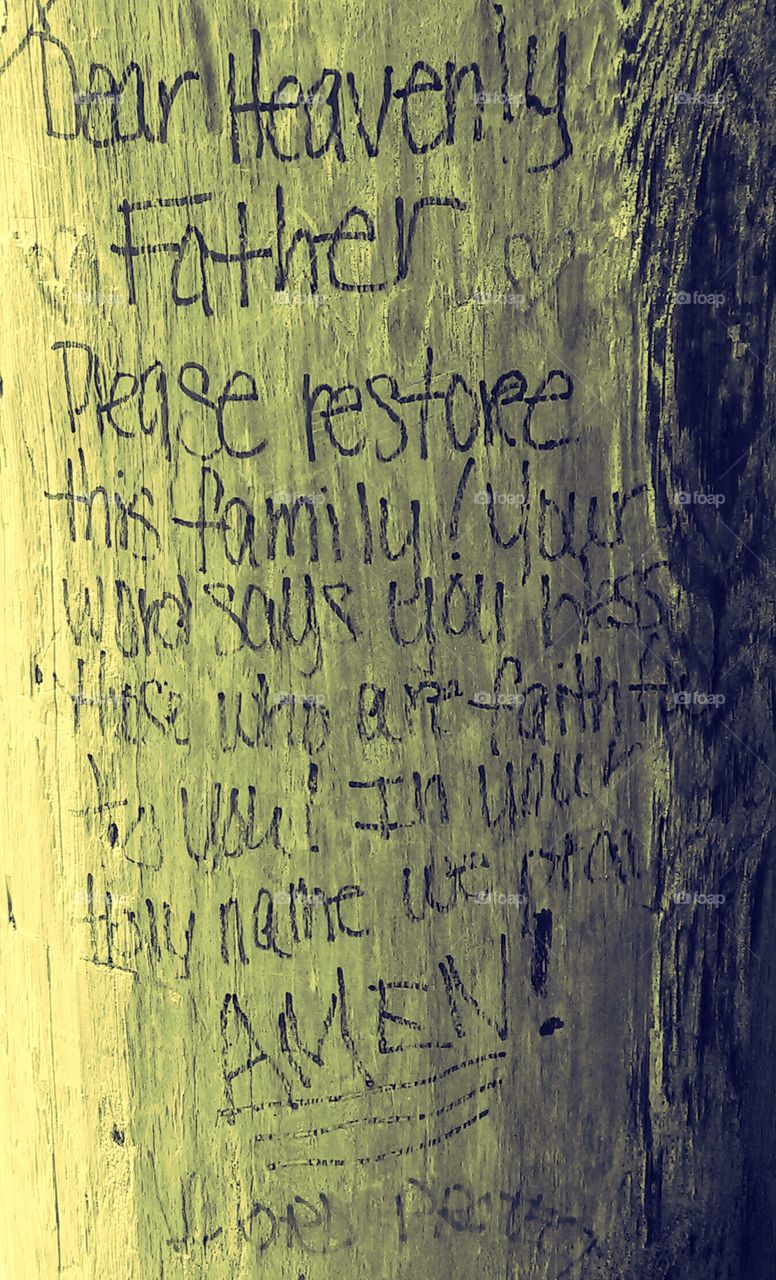 Dear Heavenly
Father
Please restore
this family! Your
word says you bless
those who are faithful
to you! In your
Holy name we pray
AMEN!